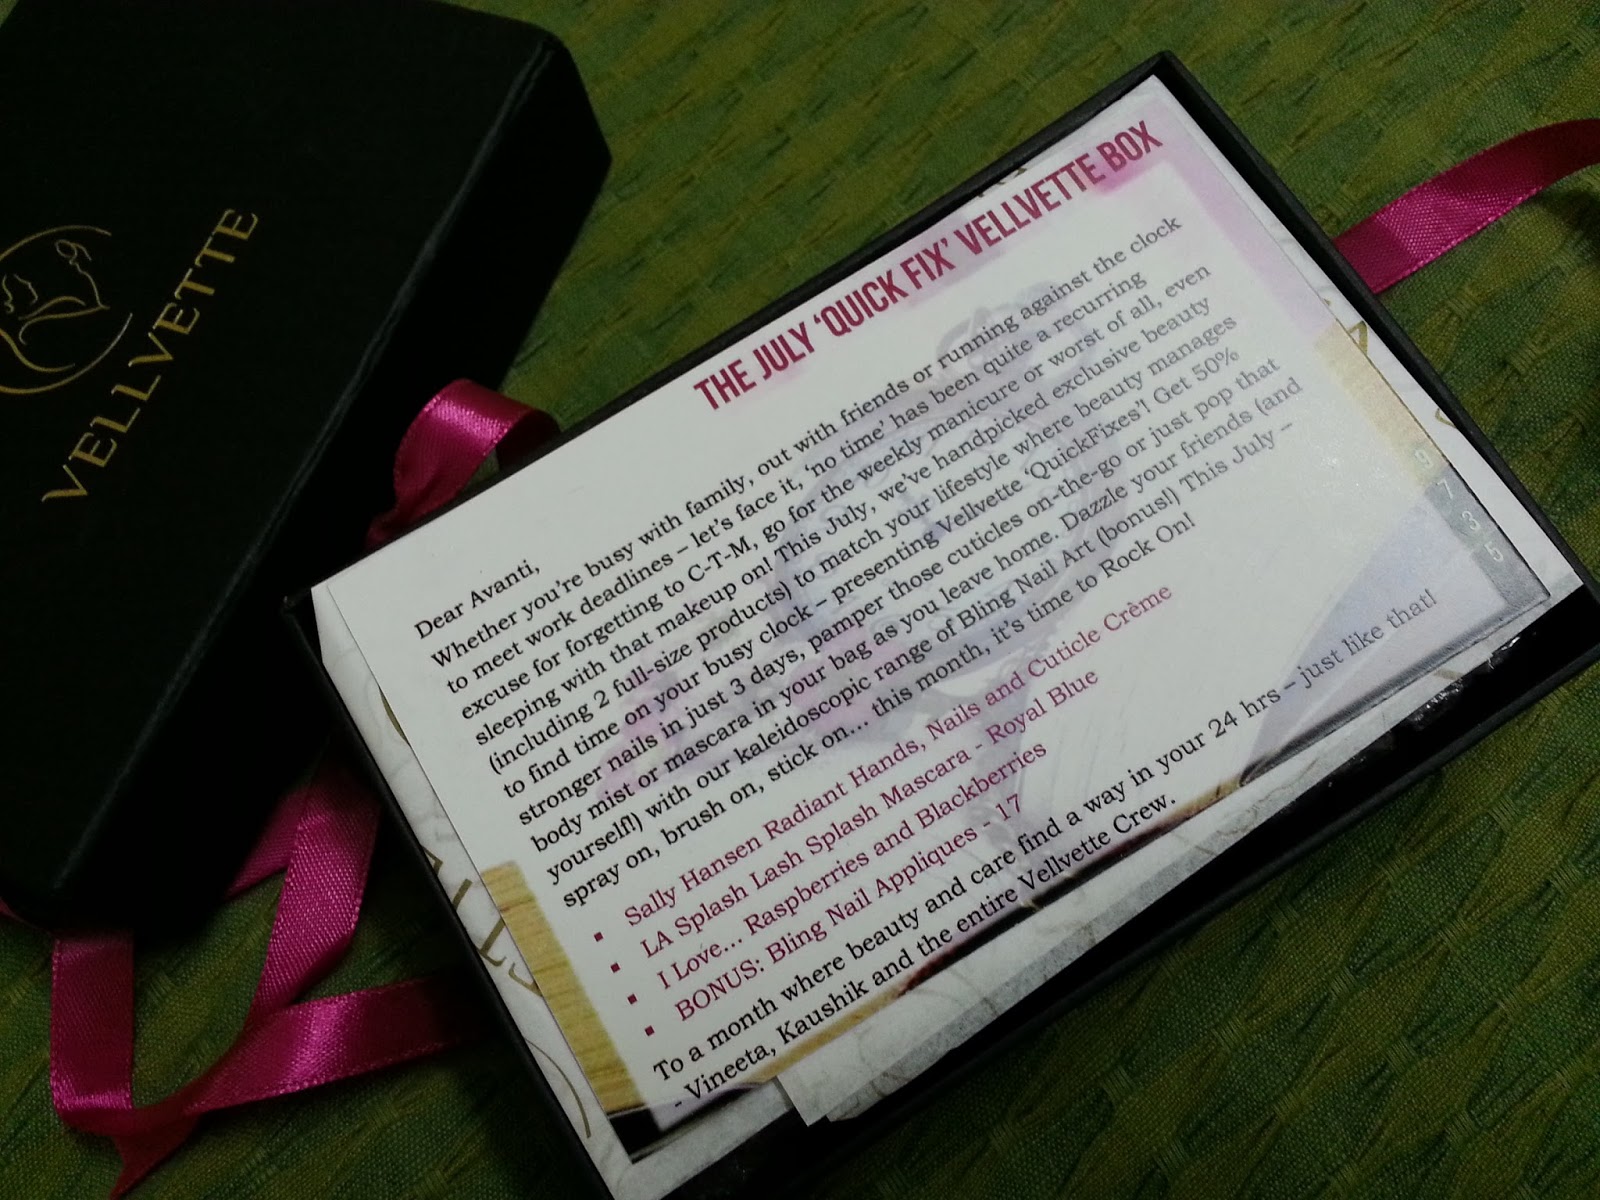 VELLVETTE
THE JULY ‘QUICK FIX’ VELLVETTE BOX
Dear Avanti,
Whether you’re busy with family, out with friends or running against the clock
to meet work deadlines – let’s face it, ‘no time’ has been quite a recurring
excuse for forgetting to C-T-M, go for the weekly manicure or worst of all, even
sleeping with that makeup on! This July, we’ve handpicked exclusive beauty
(including 2 full-size products) to match your lifestyle where beauty manages
to find time on your busy clock – presenting Vellvette ‘QuickFixes’! Get 50%
stronger nails in just 3 days, pamper those cuticles on-the-go or just pop that
body mist or mascara in your bag as you leave home. Dazzle your friends (and
yourself!) with our kaleidoscopic range of Bling Nail Art (bonus!) This July –
spray on, brush on, stick on... this month, it’s time to Rock On!
▪ Sally Hansen Radiant Hands, Nails and Cuticle Crème
▪ LA Splash Lash Splash Mascara - Royal Blue
▪ I Love... Raspberries and Blackberries
▪ BONUS: Bling Nail Appliques - 17
To a month where beauty and care find a way in your 24 hrs – just like that!
- Vineeta, Kaushik and the entire Vellvette Crew.
9
7
3
5